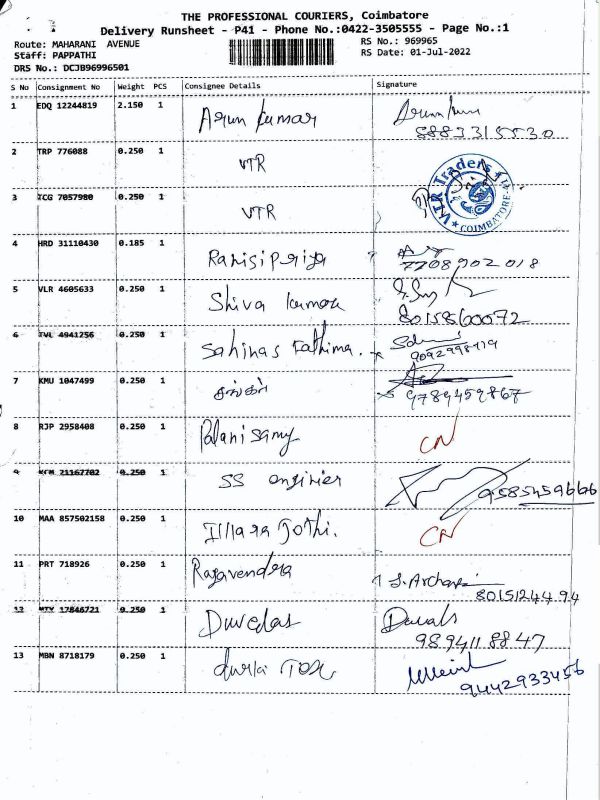 THE PROFESSIONAL COURIERS, Coimbatore
Delivery Runsheet - P41 - Phone No.:0422-3505555 - Page No.:1
Route: MAHARANI AVENUE
RS No.: 969965
Staff: PAPPATHI
RS Date: 01-Jul-2022
DRS No.: DCJB96996501
S No Consignment No Weight PCS Consignee Details Signature
1 EDQ 12244819 2.150 1 Arun kumar
8883315530
2 TRP 776088 0.250 1 VTR
VTR Traders
COIMBATORE
3 TCG 7057980 0.250 1 VTR
4 HRD 31110430 0.185 1
7708902018
5 VLR 4605633 0.250 1 Shiva kumar
8015860072
6 TVL 4941256 0.250 1 Sahinas Fathima.
9092998919
7 KMU 1047499 0.250 1
9789459867
8 RJP 2958408 0.250 1 Palanisamy CN
9 21167702 0.250 1 SS enginier
9585459666
10 MAA 857502158 0.250 1 Illara Jothi. CN
11 PRT 718926 0.250 1 Ragavendra
8015124494
12 MTY 17846721 0.250 1 Duvedas
9894118847
13 MBN 8718179 0.250 1
9442933456